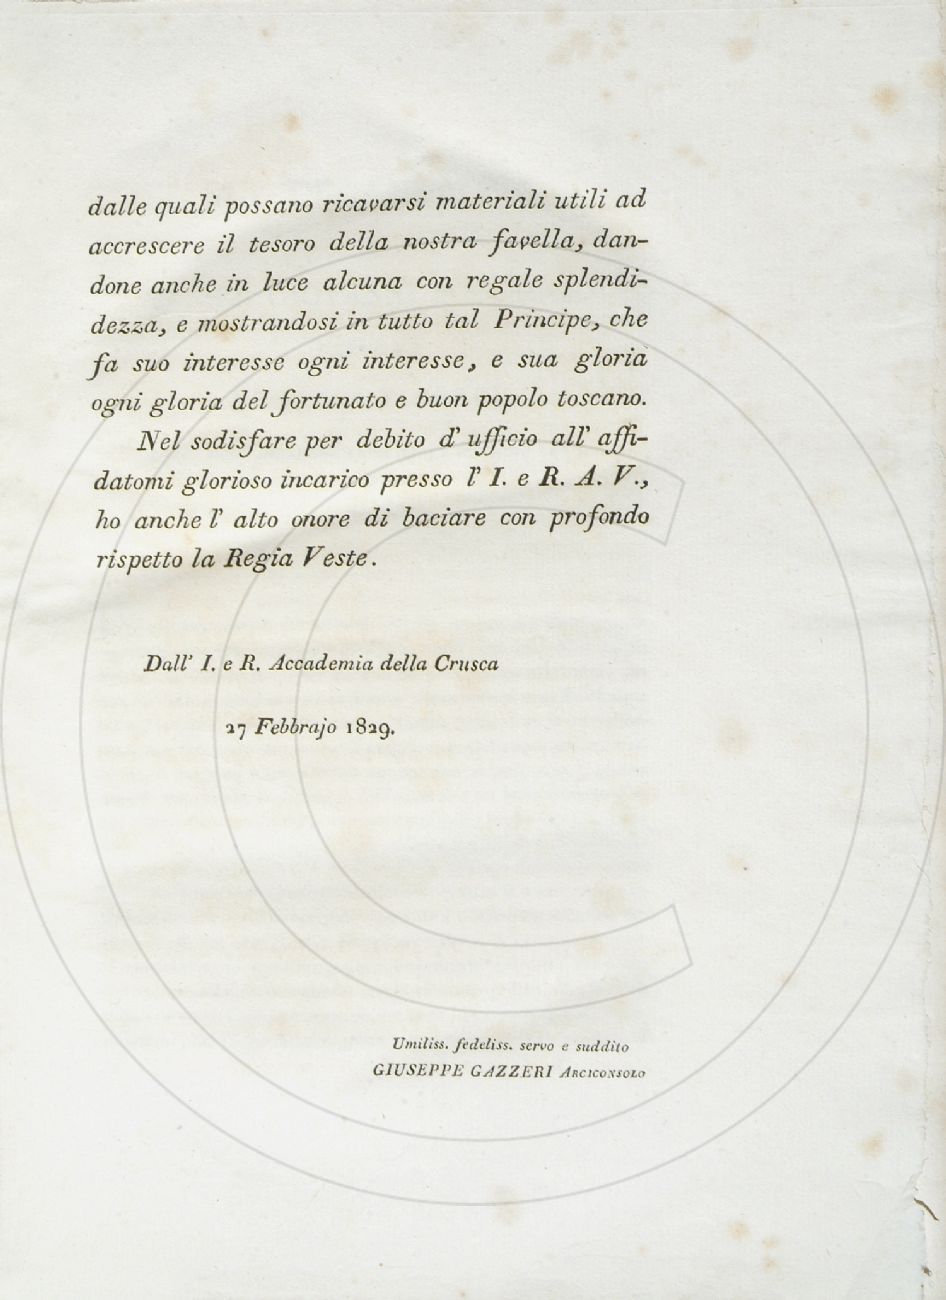 dalle quali possano ricavarsi materiali utili ad
accrescere il tesoro della nostra favella, dan-
done anche in luce alcuna con regale splendi-
dezza, e mostrandosi in tutto tal Principe, che
fa suo interesse ogni interesse, e sua gloria
ogni gloria del fortunato e buon popolo toscano.
Nel sodisfare per debito d' ufficio all' affi-
datomi glorioso incarico presso l' I. e R. A. V.,
ho anche l' alto onore di baciare con profondo
rispetto la Regia Veste.
Dall' I. e R. Accademia della Crusca
27 Febbrajo 1829.
Umiliss. fedeliss. servo e suddito
GIUSEPPE GAZZERI ARCICONSOLO